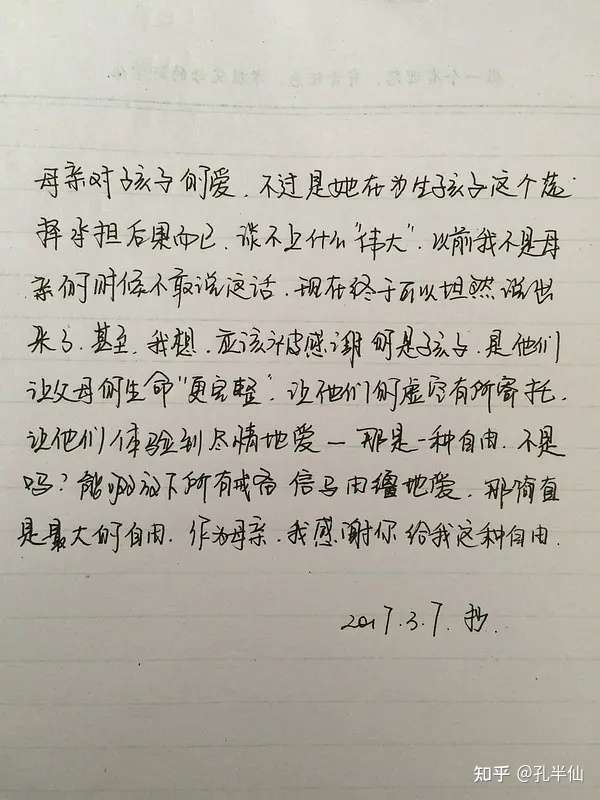 母亲对孩子的爱，不过是她在为生孩子这个选
择承担后果而已，谈不上什么“伟大”。以前我不是母
亲的时候不敢说这话，现在终于可以坦然说出
来了。甚至，我想，应该被感谢的是孩子，是他们
让父母的生命“更完整”，让他们的虚空有所寄托，
让他们体验到尽情地爱—那是一种自由，不是
吗？能够放下所有戒备信马由缰地爱，那简直
是最大的自由。作为母亲，我感谢你给我这种自由。
2017.3.7.抄.
知乎 @孔半仙